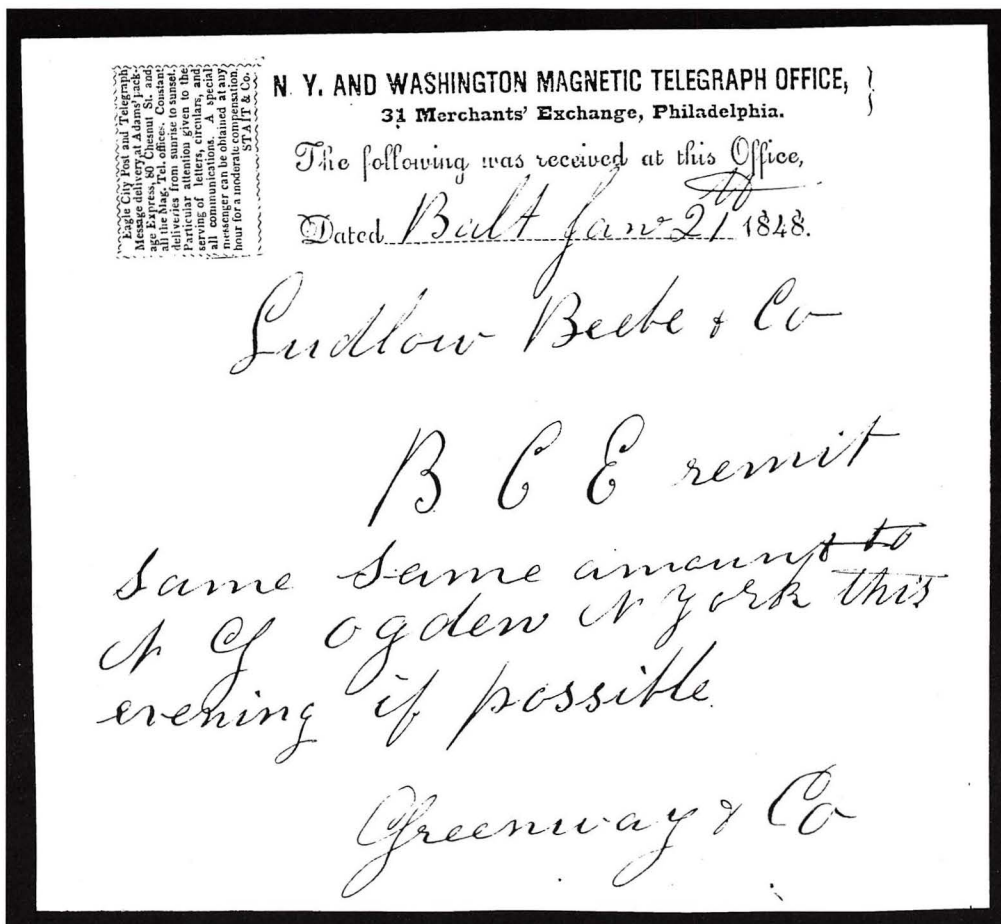 Eagle City Post and Telegraph
Message delivery, at Adams' pack-
age Express, 80 Chesnut St. and
all the Mag. Tel. offices. Constant
deliveries from sunrise to sunset.
Particular attention given to the
serving of letters, circulars, and
all communications. A special
messenger can be obtained at any
hour for a moderate compensation.
STAIT & Co.
N. Y. AND WASHINGTON MAGNETIC TELEGRAPH OFFICE,
31 Merchants' Exchange, Philadelphia.
The following was received at this Office,
Dated Balt Jan 21 1848.
Ludlow Beebe & Co
B C E remit
same same amount to
N G Ogden N York this
evening if possible
Greenway & Co